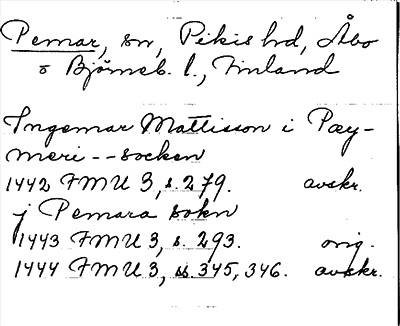 Pemar, sn, Pikis hd, Åbo
o Björneb. l., Finland
Ingemar Mattisson i Pæy-
meri -- socken
1442 FMU 3, s. 279. avskr.
j Pemara sokn
1443 FMU 3, s. 293. orig.
1444 FMU 3, ss. 345, 346. avskr.